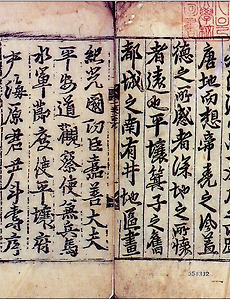 唐地而想帝堯之風蓋
德之所感者深地之所懷
者遠也平壤箕子之舊
都城之南有井地區畫
紀光國功臣嘉善大夫
平安道觀察使兼兵馬
水軍節度使平壤府
尹海原君尹斗壽序